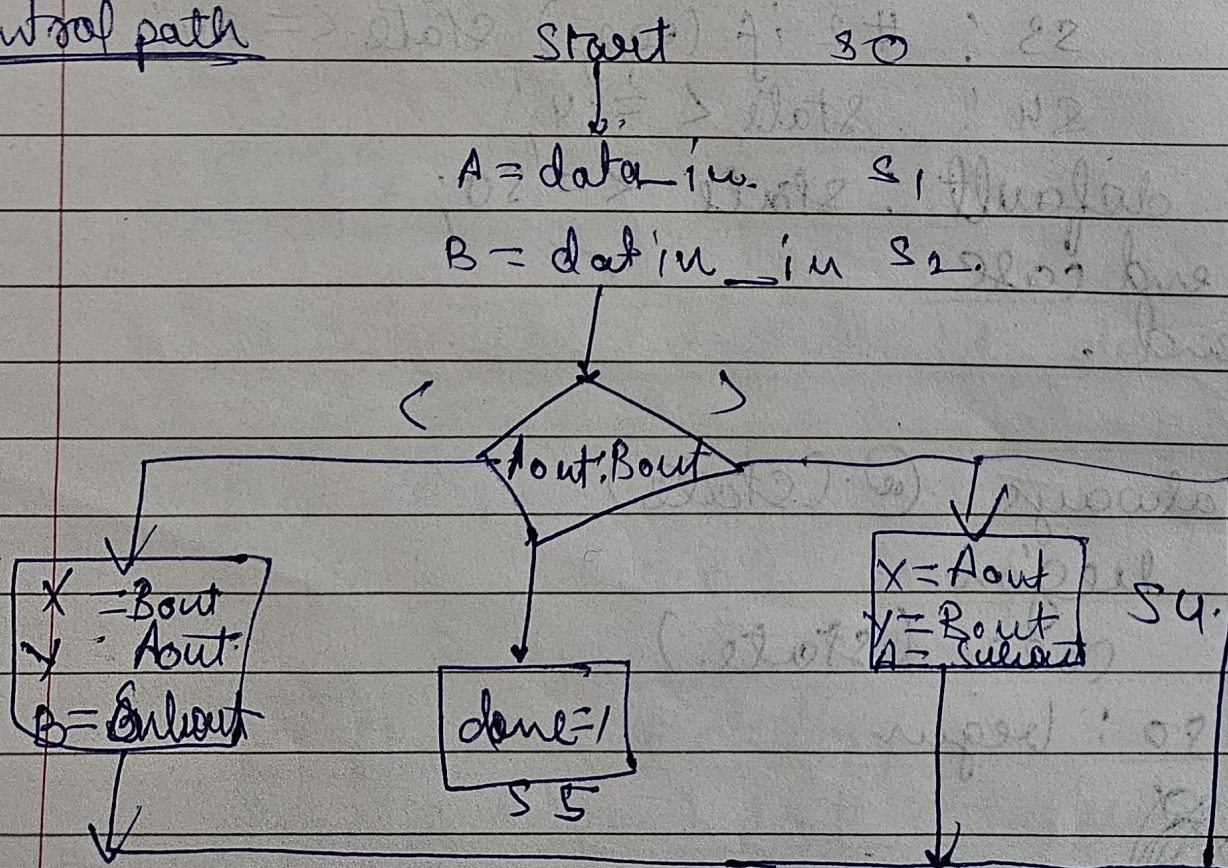 ntrol path
Start S0
A = data_in. S1
B = datin_in S2.
< >
Aout:Bout
X = Bout
Y = Aout
B = Subout
done=1
S5
X = Aout
Y = Bout
A = Subout
S4.